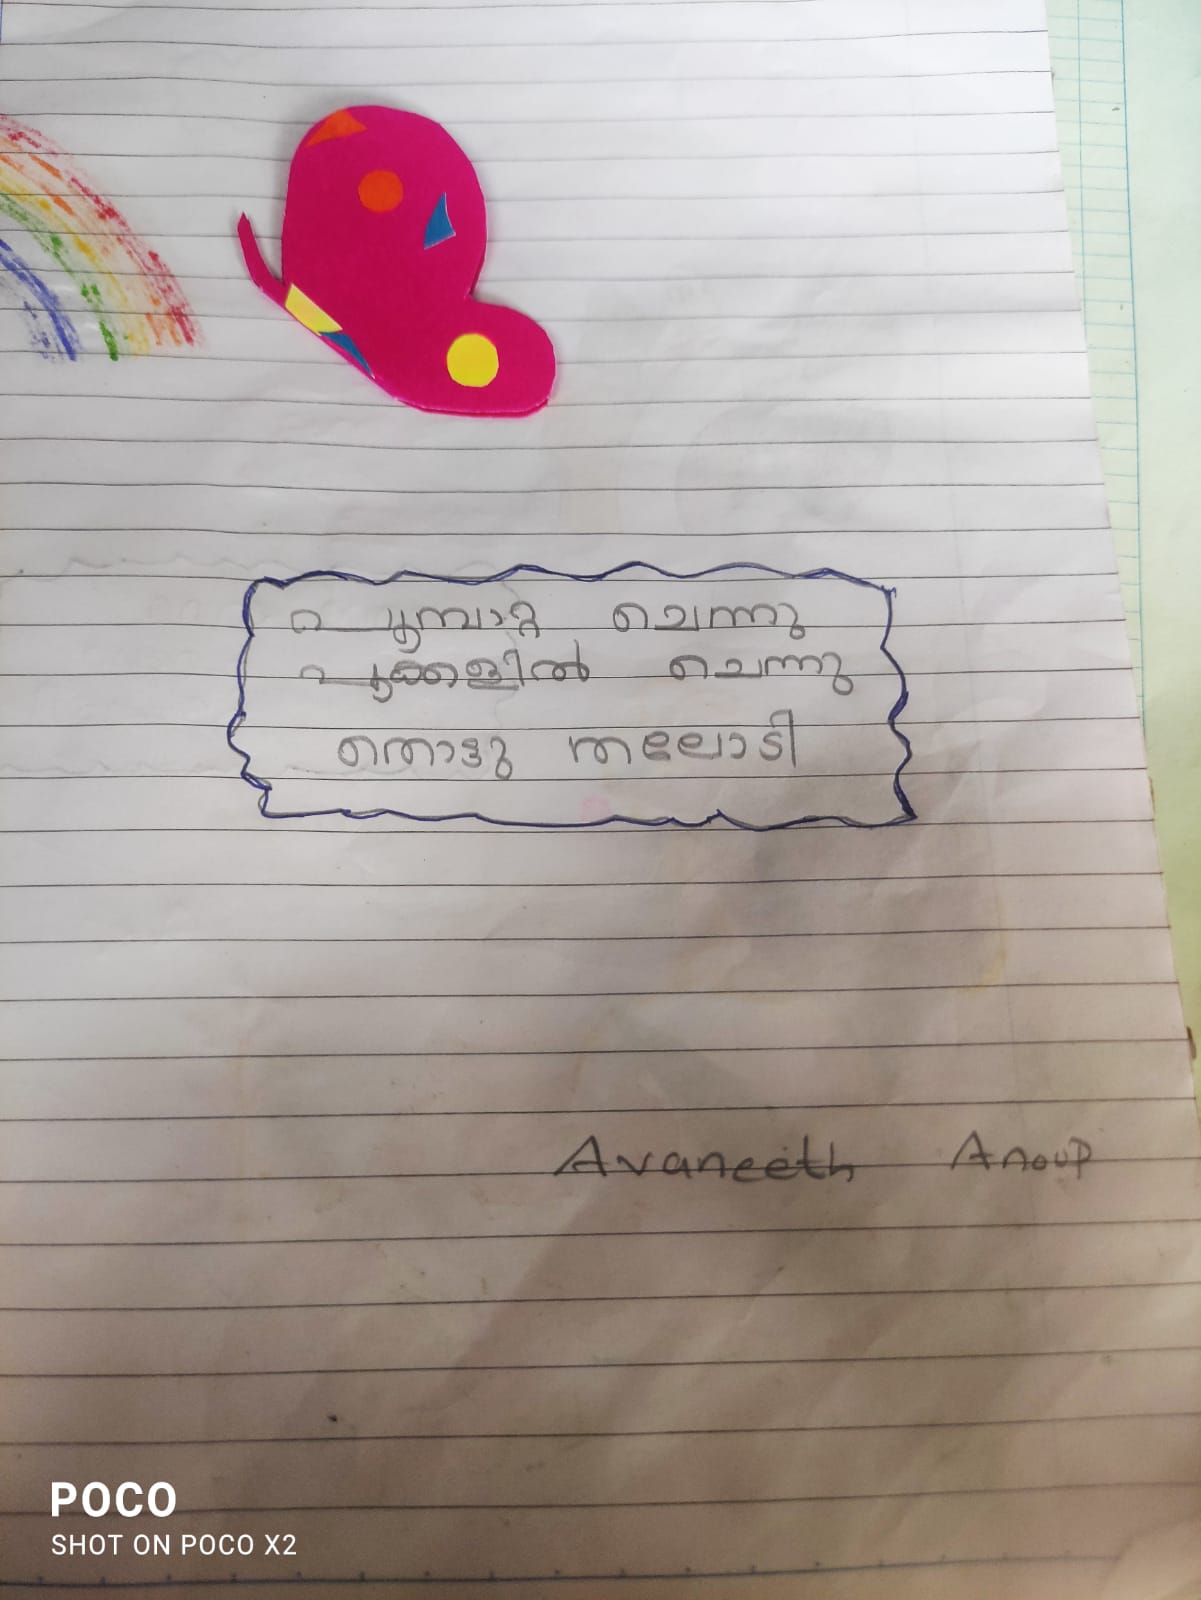 പൂമ്പാറ്റ ചെന്നു
പൂക്കളിൽ ചെന്നു
തൊട്ടു തലോടി
Avaneeth Anoup
POCO
SHOT ON POCO X2